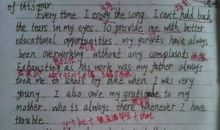 of this year.
Every time I enjoy the song, I can't hold back
the tears in my eyes. To provide me with better
educational opportunities, my parents have always
been overworking without any complaints
exhausting his work was my father always
took me to school by bike when I was very
young. I also owe my gratitude to my
mother, who is always there whenever I have
trouble.
that